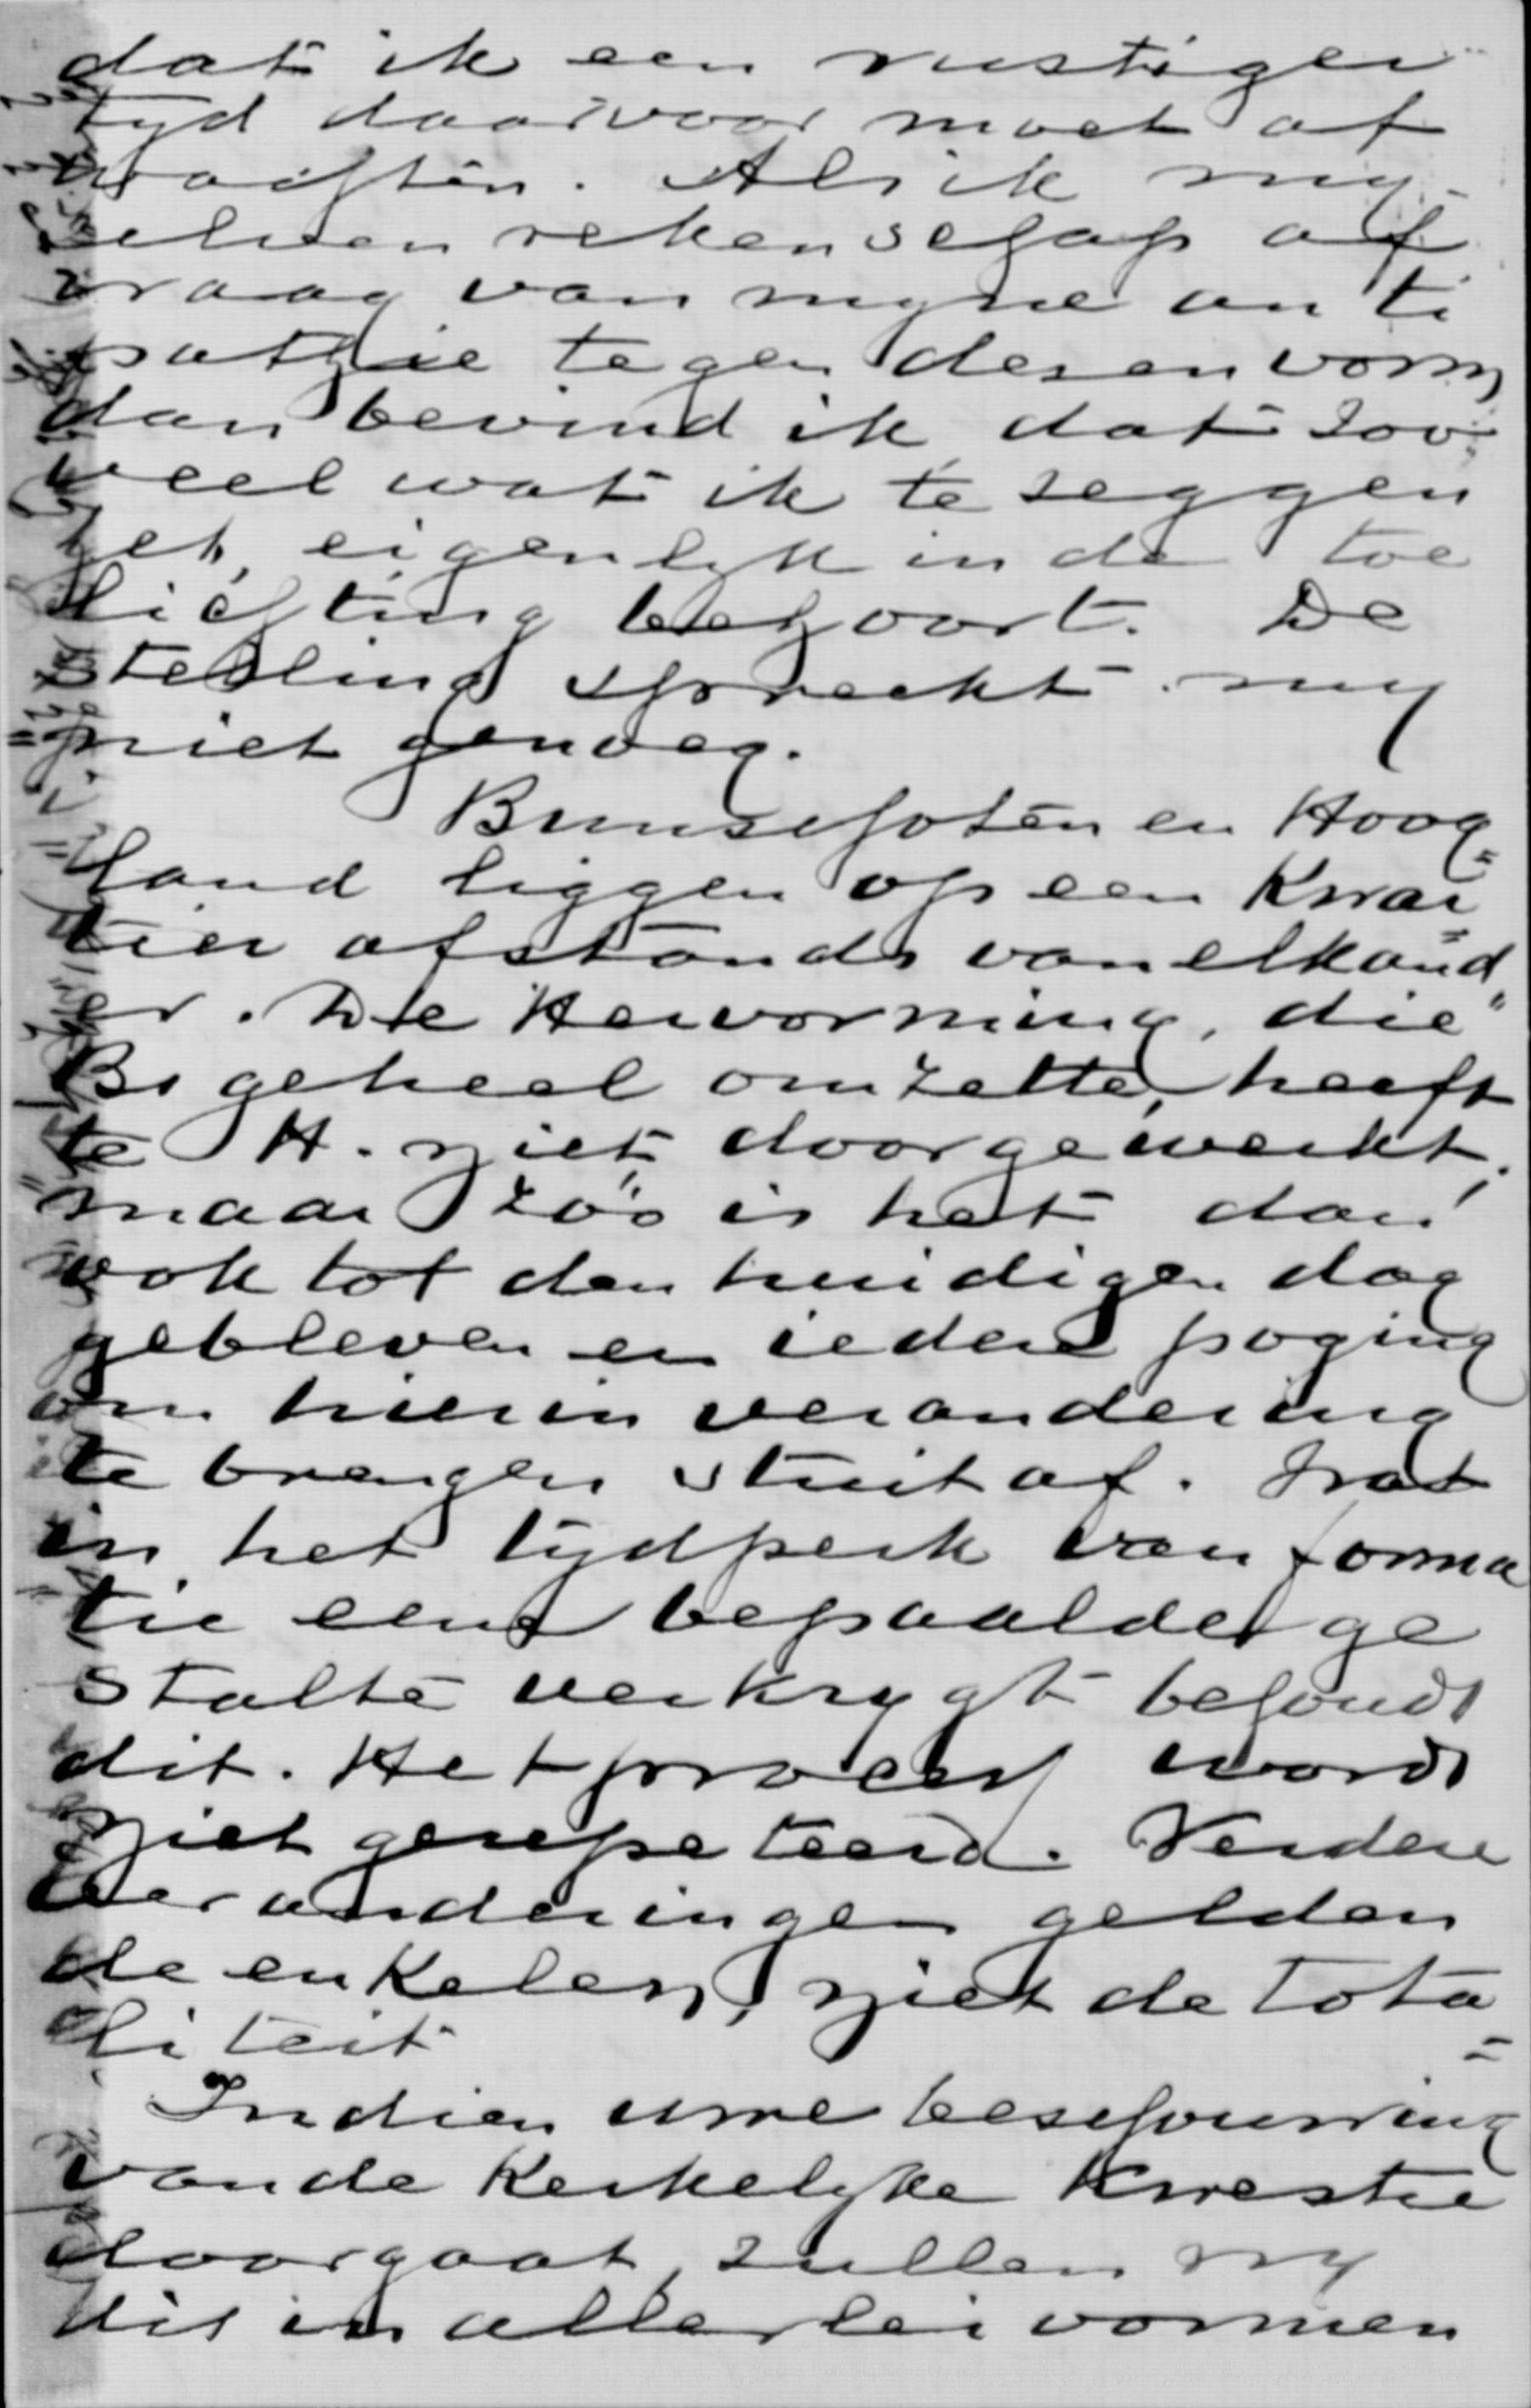 dat ik een rustiger
tyd daarvoor moet af
wachten. Als ik my
zelven rekenschap af
vraag van myne anti
pathie tegen dezen vorm
dan bevind ik dat zoo
veel wat ik te zeggen
heb, eigenlyk in de toe
lichting behoort. De
stelling spreekt my
niet genoeg.
Bunschoten en Hoog=
land liggen op een kwar=
tier afstands van elkand"
er. De Hervorming, die
B. geheel omzette, heeft
te H. niet doorgewerkt,
maar zóó is het dan
ook tot den huidigen dag
gebleven en iedere poging
om hierin verandering
te brengen stuit af. Wat
in het tydperk van forma
tie eene bepaalde ge
stalte verkrygt behoudt
dit. Het proces wordt
niet gerepeteerd. Verdere
veranderingen gelden
de enkelen, niet de tota=
liteit
Indien uwe beschouwing
van de kerkelyke kwestie
doorgaat, zullen wy
dit in allerlei vormen